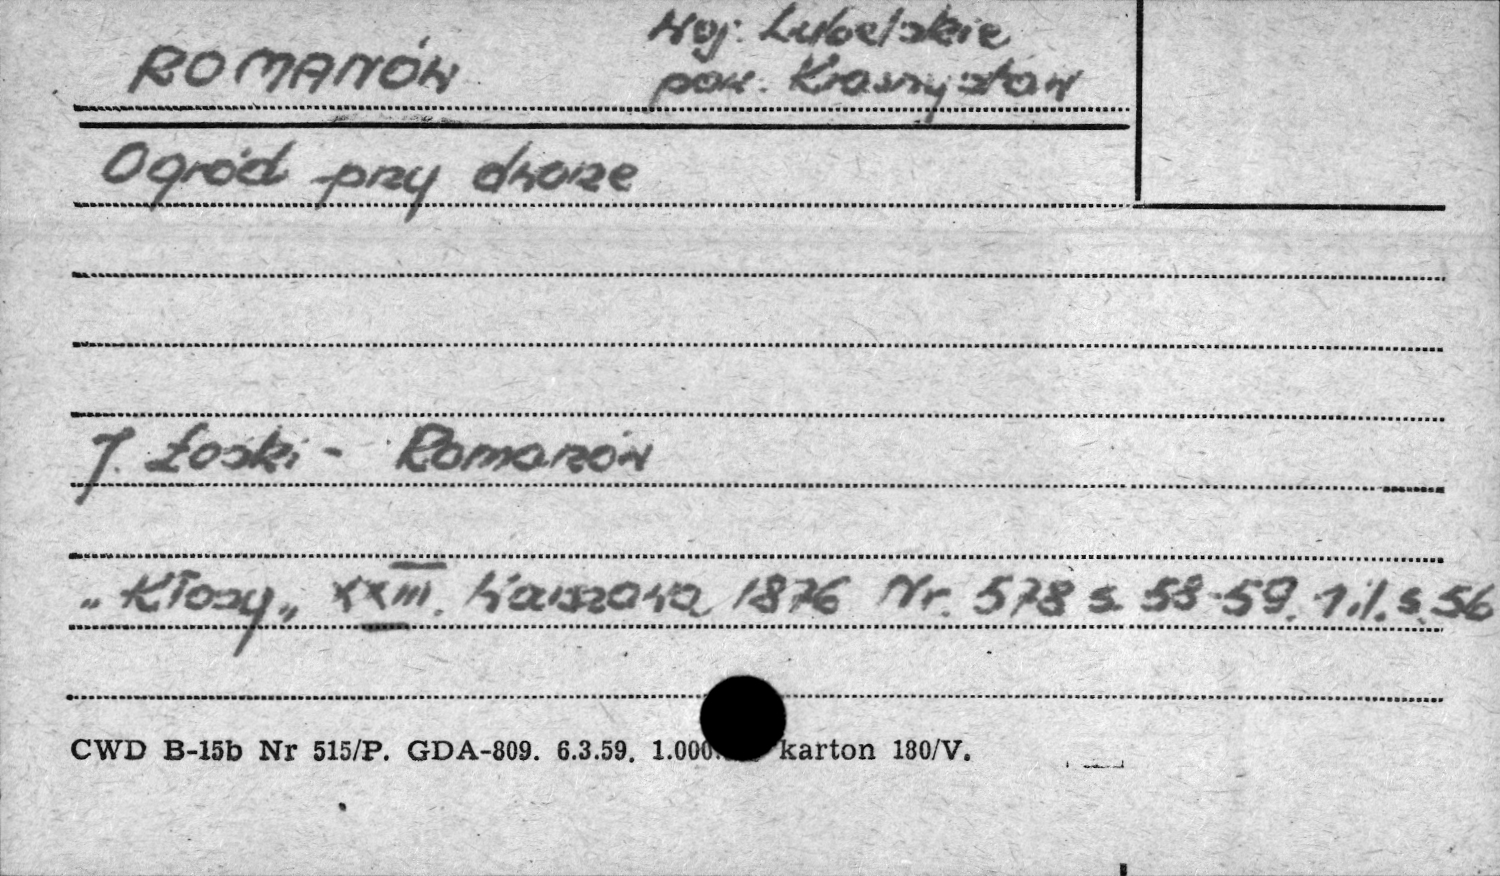 ROMANÓW
woj. Lubelskie
pow. Krasnystaw
Ogród przy dworze
J. Łoski - Romanów
„Kłosy„ XXIII. Warszawa 1876 Nr. 578 s. 58-59. 1 il. s. 56
CWD B-15b Nr 515/P. GDA-809. 6.3.59. 1.000. karton 180/V.